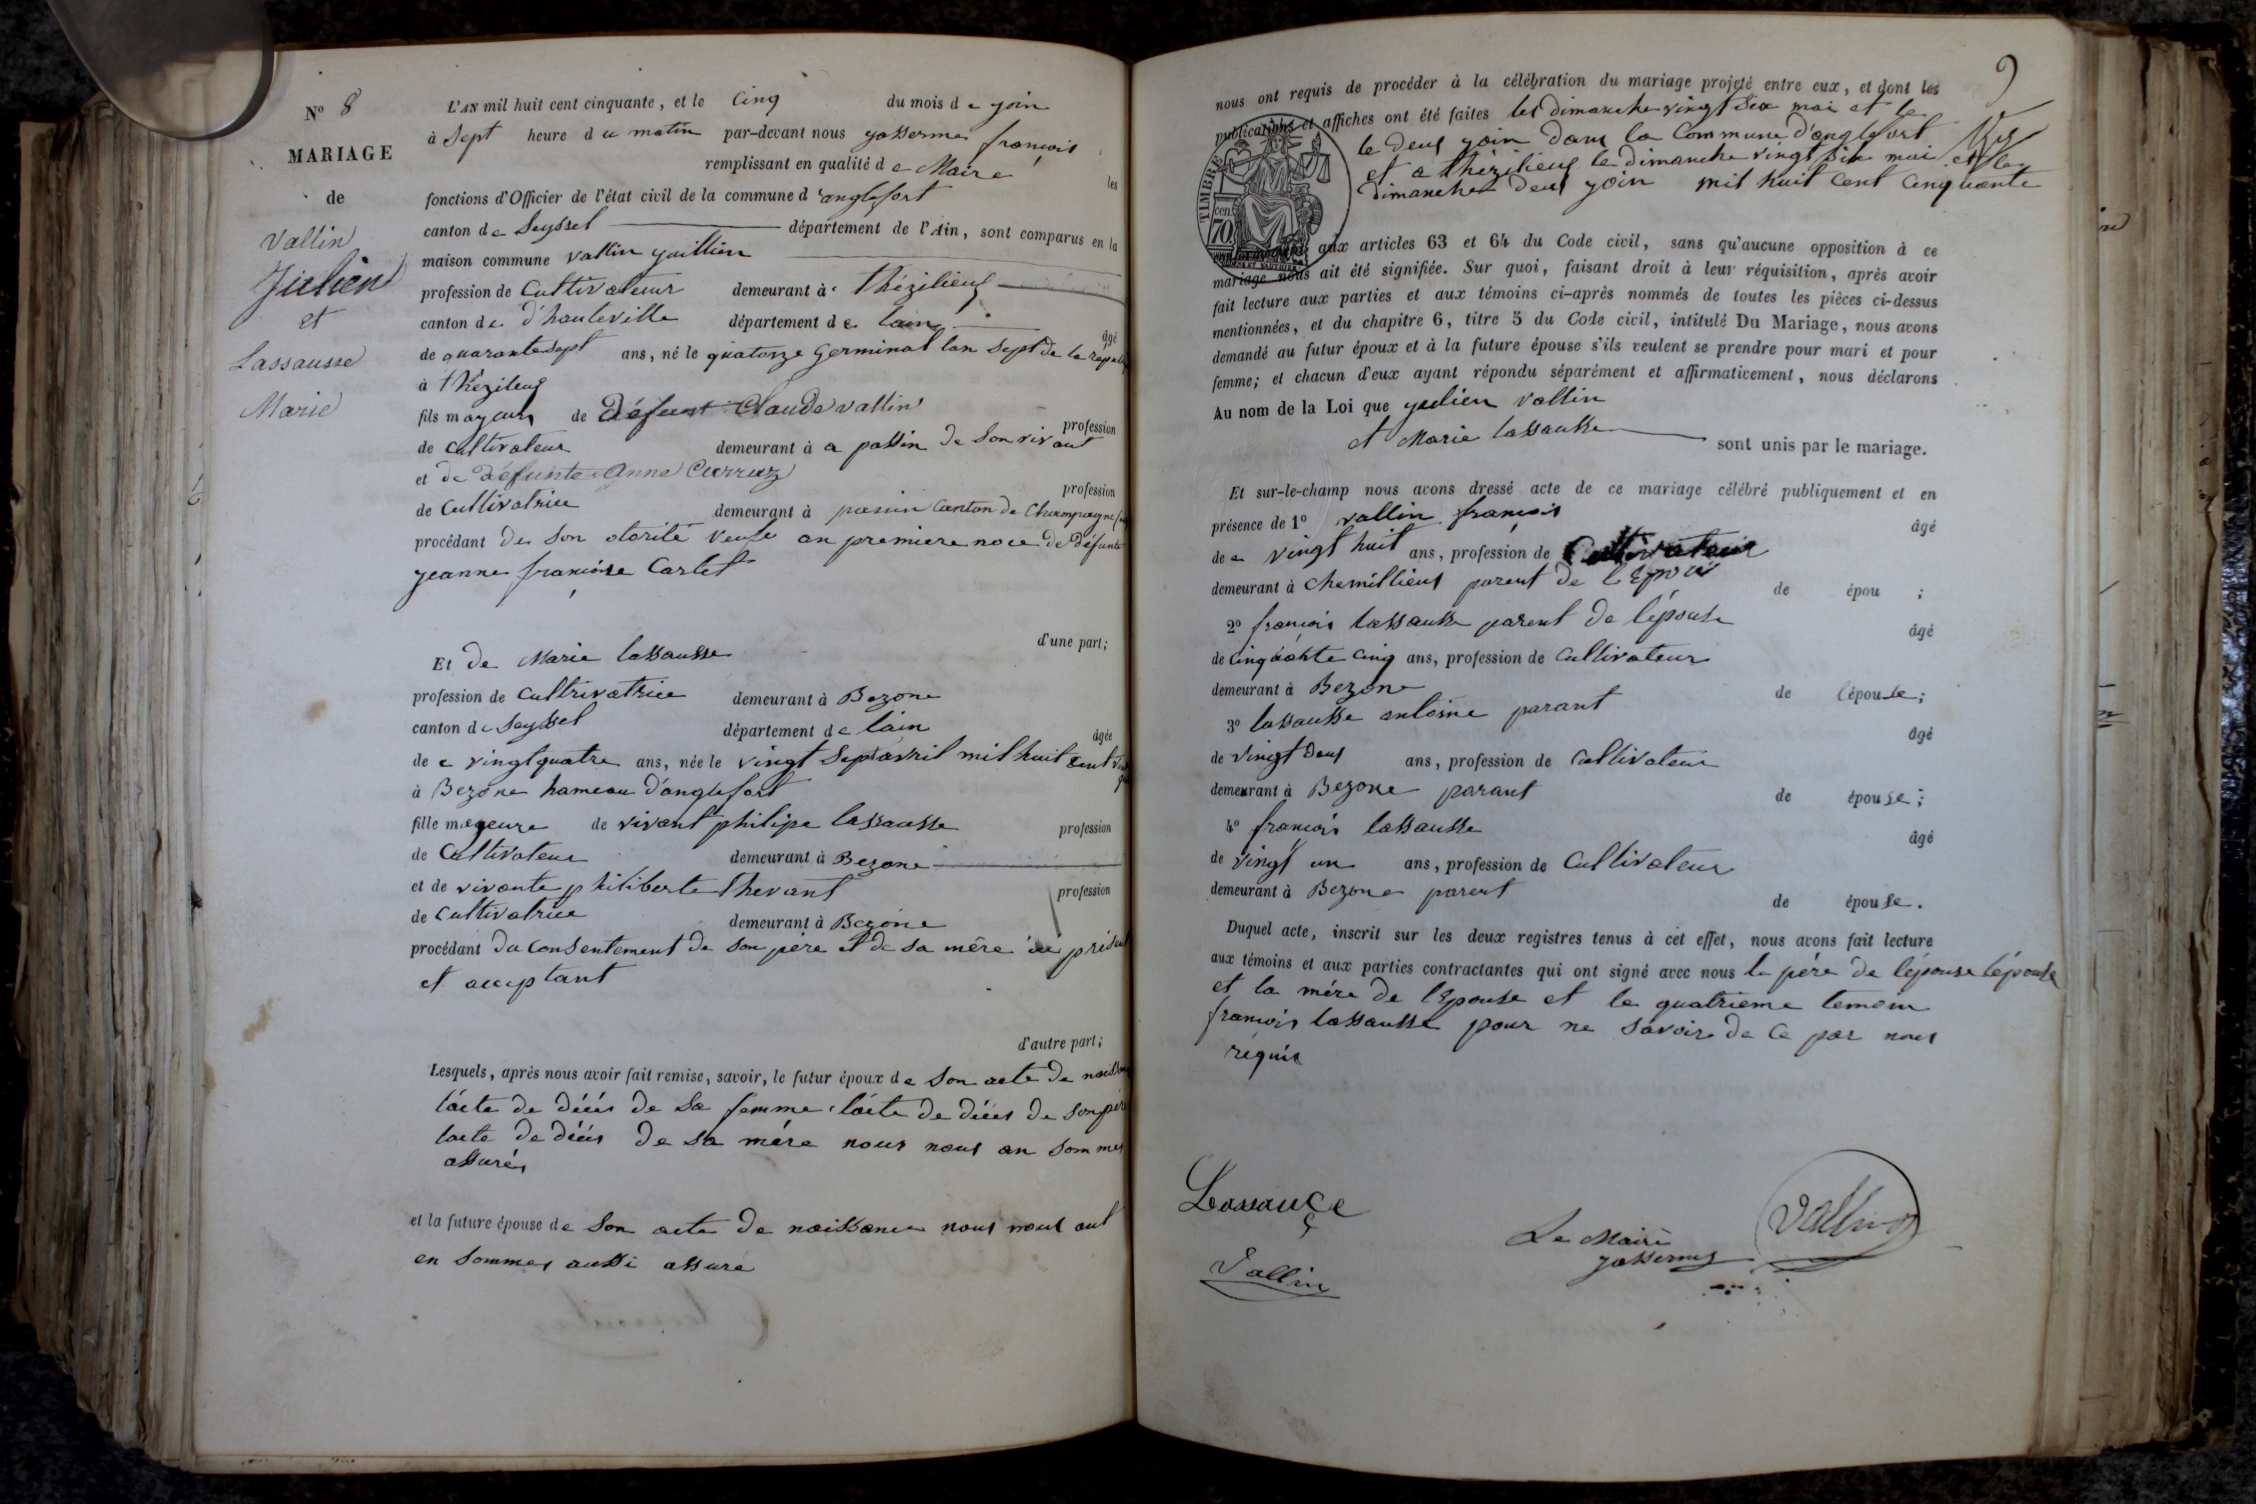 N° 8
MARIAGE
de
Vallin
Julien
et
Lassausse
Marie
L'AN mil huit cent cinquante, et le Cinq du mois de join
à Sept heure du matin par-devant nous yasserme françois
remplissant en qualité de Maire les
fonctions d'Officier de l'état civil de la commune d'anglefort
canton de Seyssel département de l'Ain, sont comparus en la
maison commune vallin
profession de Cultivateur demeurant à thézilieux
canton de d'hauteville département de lain âgé
de quarante sept ans, né le quatorze germinal lan Sept de la
à thézilieux
fils mageur de défunt Claude vallin profession
de Cultivateur demeurant à a passin de Son vivant
et de défunte Anne Curruz profession
de Cultivatrice demeurant à passin Canton de Champagne
procédant de Son otorité veufe an premiere noce de défunte
yeanne françoise Carlet
d'une part;
Et de Marie lassausse
profession de cultivatrice demeurant à Bezone
canton de Seyssel département de lain âgée
de e vingtquatre ans, née le vingt Sept avril mil huit Cent
à Bezone hameau d'anglefort
fille mageure de vivant philipe lassausse profession
de Cultivateur demeurant à Bezone
et de vivante philiberte thevant profession
de Cultivatrice demeurant à Bezone
procédant du Consentement de son père et de sa mère ici présent
et acceptant
d'autre part;
Lesquels, après nous avoir fait remise, savoir, le futur époux de Son acte de
lácte de décés de Sa femme lácte de décés de Son père
lacte de décés de sa mére nous nous an Sommes
assurés
et la future épouse de Son acte de naissance nous nous
en Sommes aussi assuré
9
nous ont requis de procéder à la célébration du mariage projeté entre eux, et dont les
publications et affiches ont été faites les dimanche vingt Six mai et le
le deux join dans la Commune d'anglefort
et a thézilieux le dimanche vingt Six mai et le
dimanche deux yoin mil huit Cent Cinquante
TIMBRE
cen. 70
aux articles 63 et 64 du Code civil, sans qu'aucune opposition à ce
mariage nous ait été signifiée. Sur quoi, faisant droit à leur réquisition, après avoir
fait lecture aux parties et aux témoins ci-après nommés de toutes les pièces ci-dessus
mentionnées, et du chapitre 6, titre 5 du Code civil, intitulé Du Mariage, nous avons
demandé au futur époux et à la future épouse s'ils veulent se prendre pour mari et pour
femme; et chacun d'eux ayant répondu séparément et affirmativement, nous déclarons
Au nom de la Loi que yulien vallin
et Marie lassausse sont unis par le mariage.
Et sur-le-champ nous avons dressé acte de ce mariage célébré publiquement et en
présence de 1° vallin françois âgé
de e vingt huit ans, profession de Cultivateur
demeurant à chemillieux parent de l'Epoux de épou ;
2° françois lassausse parent de lépouse âgé
de cinquante cinq ans, profession de Cultivateur
demeurant à Bezone de lépouse;
3° lassausse antoine parant âgé
de vingt deux ans, profession de Cultivateur
demeurant à Bezone parant de épouse;
4° françois lassausse âgé
de vingt un ans, profession de Cultivateur
demeurant à Bezone parent de épouse.
Duquel acte, inscrit sur les deux registres tenus à cet effet, nous avons fait lecture
aux témoins et aux parties contractantes qui ont signé avec nous le père de lépouse lépouse
et la mére de l'Epouse et le quatrieme temoin
françois lassausse pour ne Savoir de Ce par nous
réquis
Lassauçe
Vallin
Le Maire
yasserme
Vallin